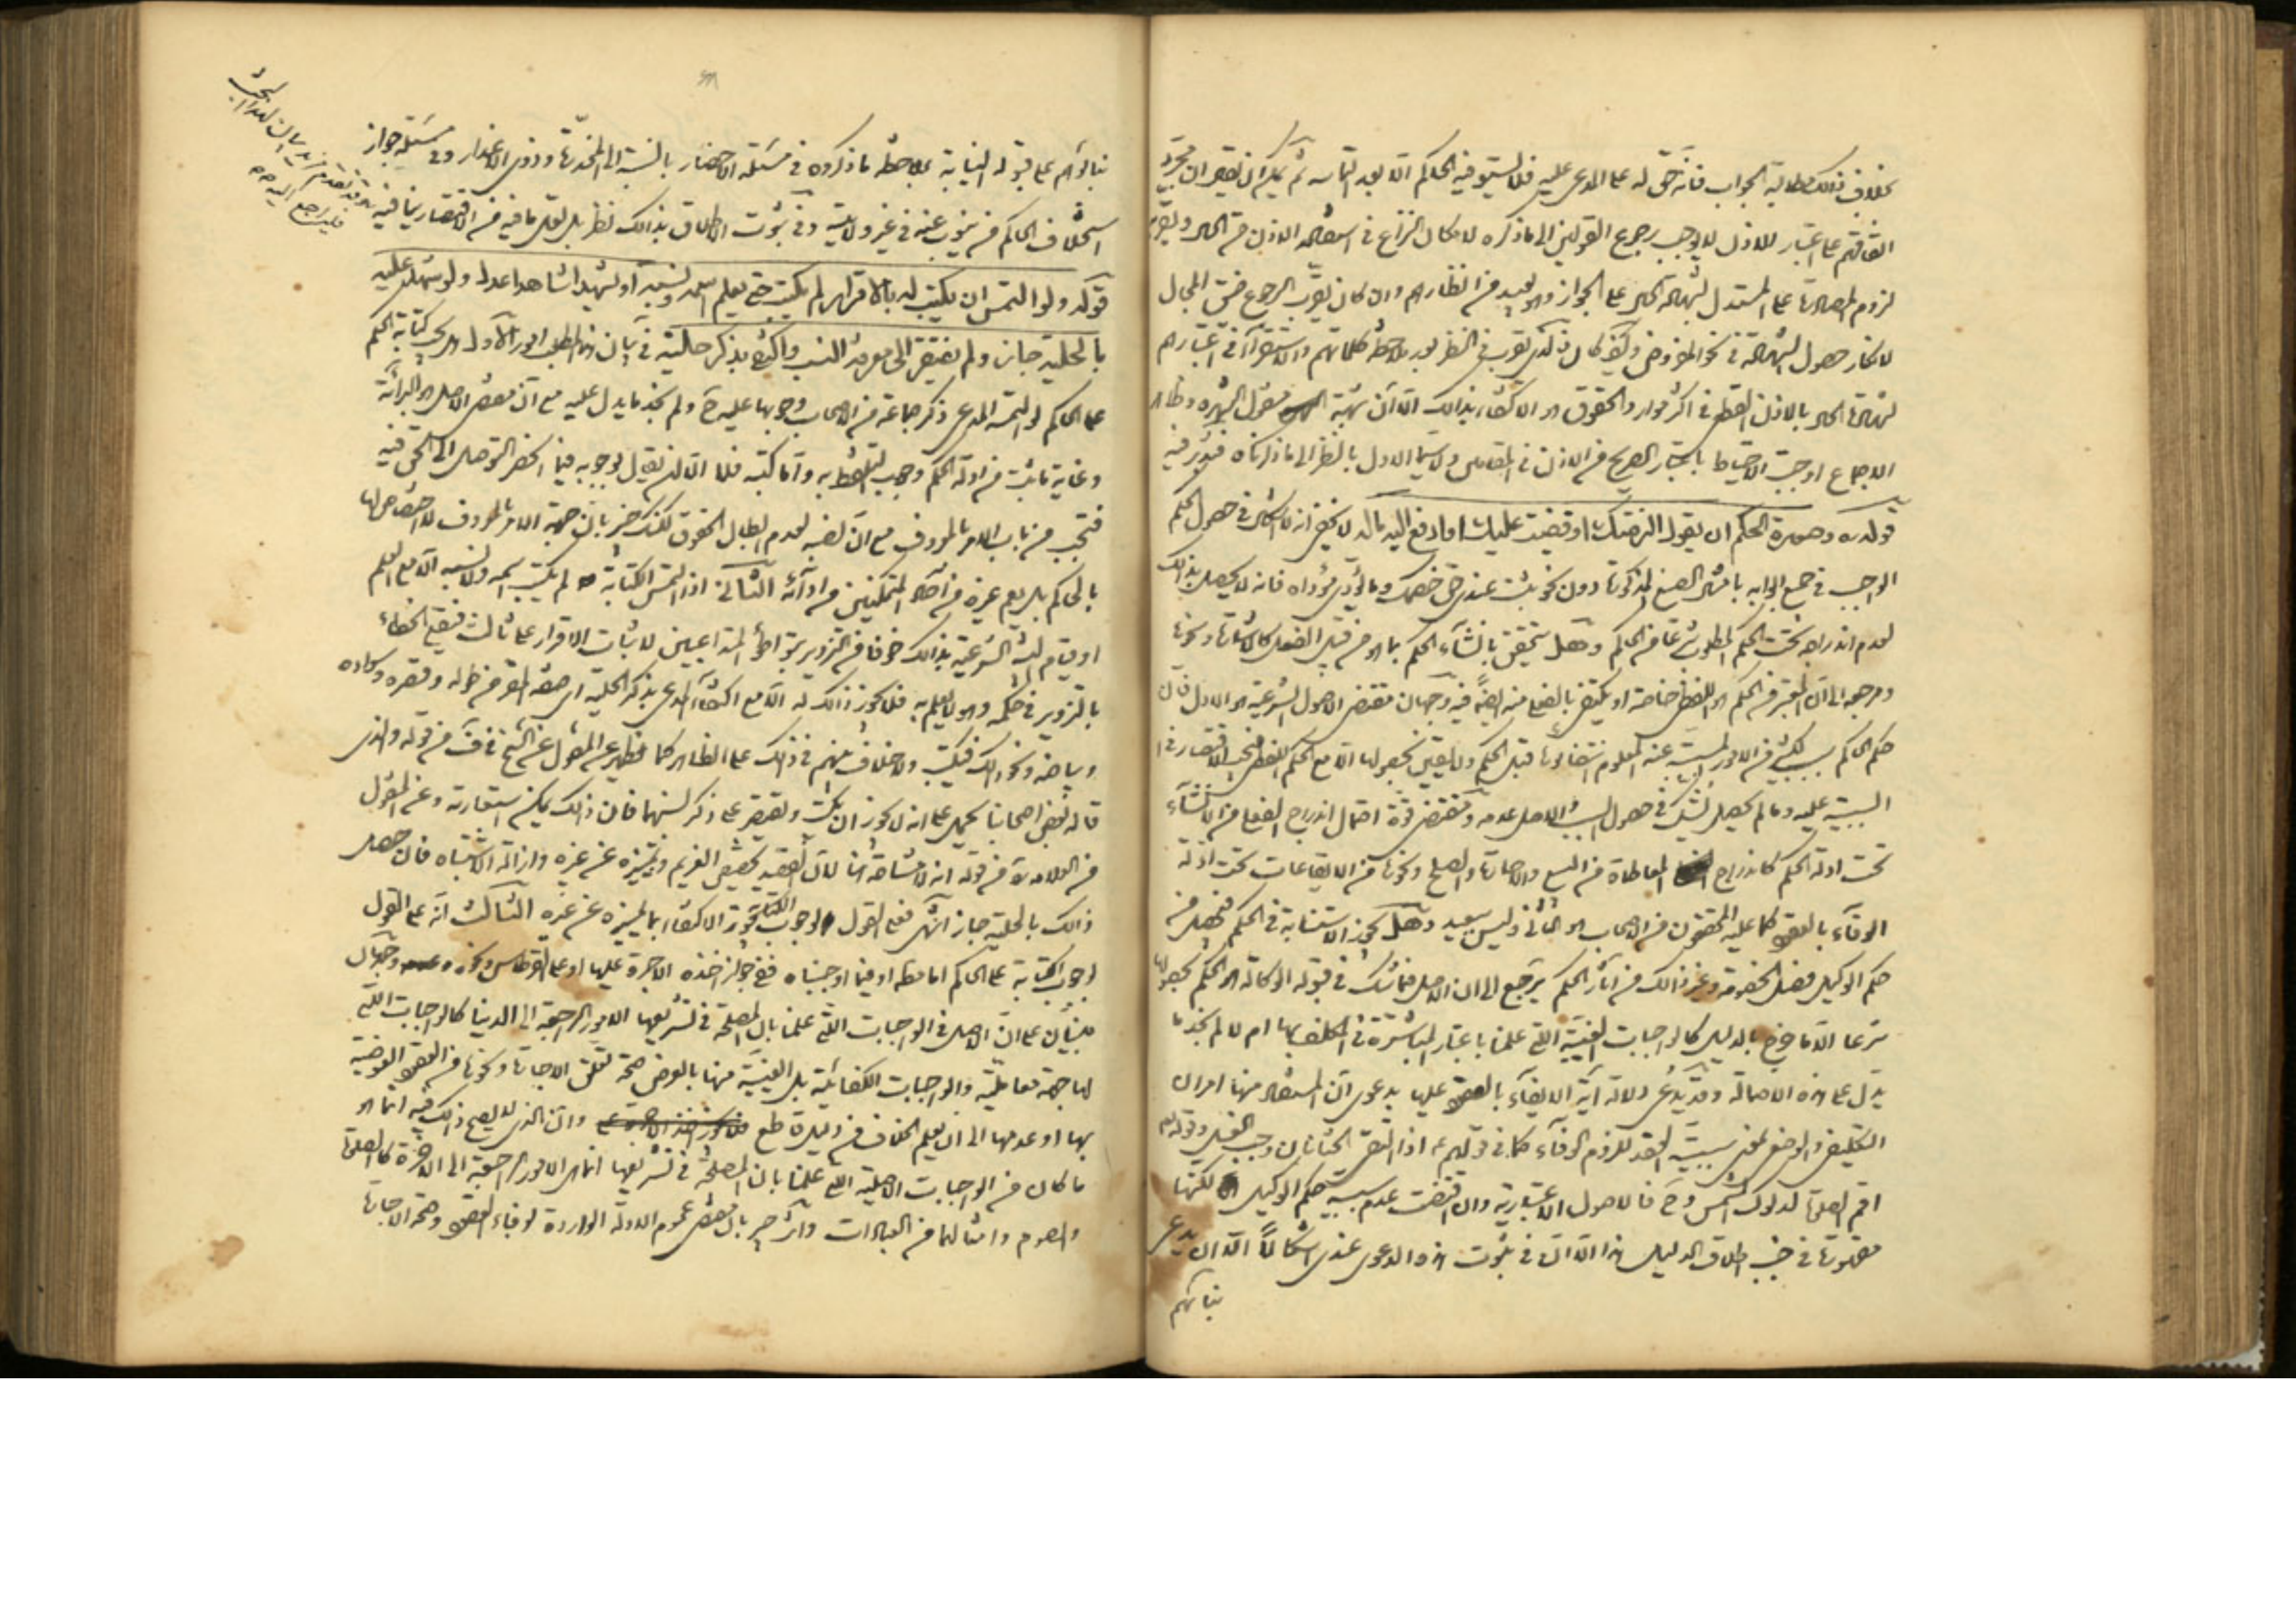 بخلاف ذلك مطالبة الجواب فانه حق له على المدعى عليه فلا يستوفيه الحاكم الا بعد التماسه ثم
اتفاقهم على اعتبار الاذن لا يوجب رجوع القولين الى ما ذكره لامكان النزاع في
لزوم على المستدل لشهادة الحال على الجواز وهو بعيد من انظارهم وان كان يقرب الرجوع ضيق المجال
لانكار حصول الشهادة في نحو المفروض وكيف كان في النظر بعد ملاحظة كلماتهم والاستقراء في اعتبارهم
لشهادة الحال بالاذن في اكثر موارد الحقوق هو الاكتفاء بذلك الا ان شبهة منقول الشهرة وظاهر
الاجماع اوجبت الاحتياط باعتبار الصريح من الاذن في المقامين ولا سيما الاول بالنظر الى ما ذكرناه فتدبر فيه
قوله ره وصورة الحكم ان يقول الزمتك او قضيت عليك او ادفع اليه ماله لا يخفى انه لا اشكال في حصول الحكم
الواجب في جميع ابوابه بامثال الصيغ المذكورة دون نحو يثبت عندي حق خصمك وما يؤدي مؤداه فانه لا يحصل بذلك
لعدم اندراجه تحت الحكم المطلوب شرعا من الحاكم وهل يتحقق بانشاء الحكم بما هو من قبيل الفعل كالاشارة ونحوها
ومرجعه الى ان المعتبر في الحكم هو اللفظ خاصة او يكتفى بالفعل منه ايضا فيه وجهان مقتضى الاصول الشرعية هو الاول فان
حكم الحاكم سبب لكثير من الامور المسببة عنه المعلوم انتفائها قبل الحكم ولا يقين بحصولها الا مع الحكم اللفظي فيجب الاقتصار في
السببية عليه وما لم يحصل الشك في حصول السبب والاصل عدمه ومقتضى قوة احتمال اندراج الفعل من الانشاء
تحت ادلة الحكم كاندراج المعاطاة من البيع والاجارة والصلح ونحوها من الايقاعات تحت ادلة
الوفاء بالعقود كما عليه المحققون من الاصحاب هو الثاني وليس ببعيد وهل يجوز الاستنابة في الحكم فيحصل من
حكم الوكيل فصل الخصومة وغير ذلك من آثار الحكم يرجع الى ان الاصل فيما شك في قبوله الوكالة هو الحكم بحصولها
شرعا الا ما خرج بالدليل كالواجبات العينية التي علمنا باعتبار المباشرة في المكلف بها ام لا ما لم نجد ما
يدل على هذه الاصالة وقد يدعى دلالة آية الايفاء بالعقود عليها بدعوى ان المستفاد منها امران
التكليفي والوضعي لمعنى سببية العقد للزوم الوفاء كما في قولهم ع اذا التقى الختانان وجب الغسل وقوله تعالى
اقم الصلوة لدلوك الشمس وح فالاصول الاعتبارية وان اقتضت عدم سببية حكم الوكيل لكنها
مقهورة في جنب اطلاق الدليل هذا الا ان في ثبوت هذه الدعوى عندي اشكالا الا ان يدعى
بنائهم
بنائهم على قبوله النيابة بملاحظة ما ذكروه في مسئلة الاحضار بالنسبة الى المخدرة وذوي الاعذار وفي مسئلة جواز
استخلاف الحاكم من ينوب عنه في غير ولايته وفي ثبوت الاطلاق بذلك نظر بل لعل ما فيه من الاقتصار فيما فيه
وقد تقدم مزيد بيان لهذا البحث
فليراجع اليه
قوله ولو التمس ان يكتب له بالاقرار لم يكتب حتى يعلم اسمه ونسبه او يشهد شاهدا عدل ولو شهد عليه
بالحلية جاز ولم يفتقر الى معرفة النسب واكتفى بذكر حليته في بيان هذا المطلب امور الاول هل يجب كتابة الحكم
على الحاكم لو التمسه المدعي ذكر جماعة من الاصحاب وجوبها عليه ح ولم نجد ما يدل عليه مع ان مقتضى الاصل هو البرائة
وغاية ما يثبت من ادلة الحكم وجوب التلفظ به واما كتبه فلا الا ان نقول بوجوبه فيما انحصر التوصل الى الحق فيه
فتجب من باب الامر بالمعروف مع ان لعدم ابطال الحقوق لكنك خبير بان جهة الامر بالمعروف لا اختصاص لها
بالحاكم بل يعم غيره من آحاد المتمكنين من ادائه الثاني اذا التمس الكتابة لم يكتب اسمه ولا نسبه الا مع العلم
او قيام البينة الشرعية بذلك خوفا من التزوير بتواطؤ المتداعيين لاثبات الاقرار على ثالث فيقع الخطاء
بالتزوير في حكمه وهو لا يعلم به فلا يجوز ذلك له الا مع اكتفاء المدعي بذكر الحلية اي صفة المقر من طوله وقصره وسواده
وبياضه ونحو ذلك فيكتب ولا خلاف بينهم في ذلك على الظاهر كما يظهر عن المنقول عن الشيخ في ف من قوله والذي
قاله بعض اصحابنا يحمل على انه لا يجوز ان يكتب ويقتصر على ذكر نسبهما فان ذلك يمكن استعارته وعن المنقول
من العلامة من قوله انه لا مشاحة هنا لان القصد تخصيص الغريم وتمييزه عن غيره وازالة الاشتباه فان حصل
ذلك بالحلية جاز انتهى فعلى القول بوجوب الكتابة يجوز الاكتفاء بما يميزه عن غيره الثالث انه على القول
بوجوب الكتابة على الحاكم اما مطلقا او فيما اوجبناه ففي جواز اخذه الاجرة عليها او على القرطاس ونحوه وجهان
مبنيان على ان الاصل في الواجبات التي علمنا بان المصلحة في تشريعها الامور الراجعة الى الدنيا كالواجبات التي
لها جهة معاملية والواجبات الكفائية بل العينية منها بالعوض صحة تعلق الاجارة ونحوها من العقود العوضية
بها او عدمها الى ان يعلم الخلاف من دليل قاطع وان الذي لا يصح ذلك فيه انما هو
ما كان من الواجبات الاصلية التي علمنا بان المصلحة في تشريعها انما هي الامور الراجعة الى الآخرة كالصلوة
والصوم وامثالهما من العبادات وآثر خبير بان مقتضى عموم الادلة الواردة لوفاء العقود وصحة الاجارة